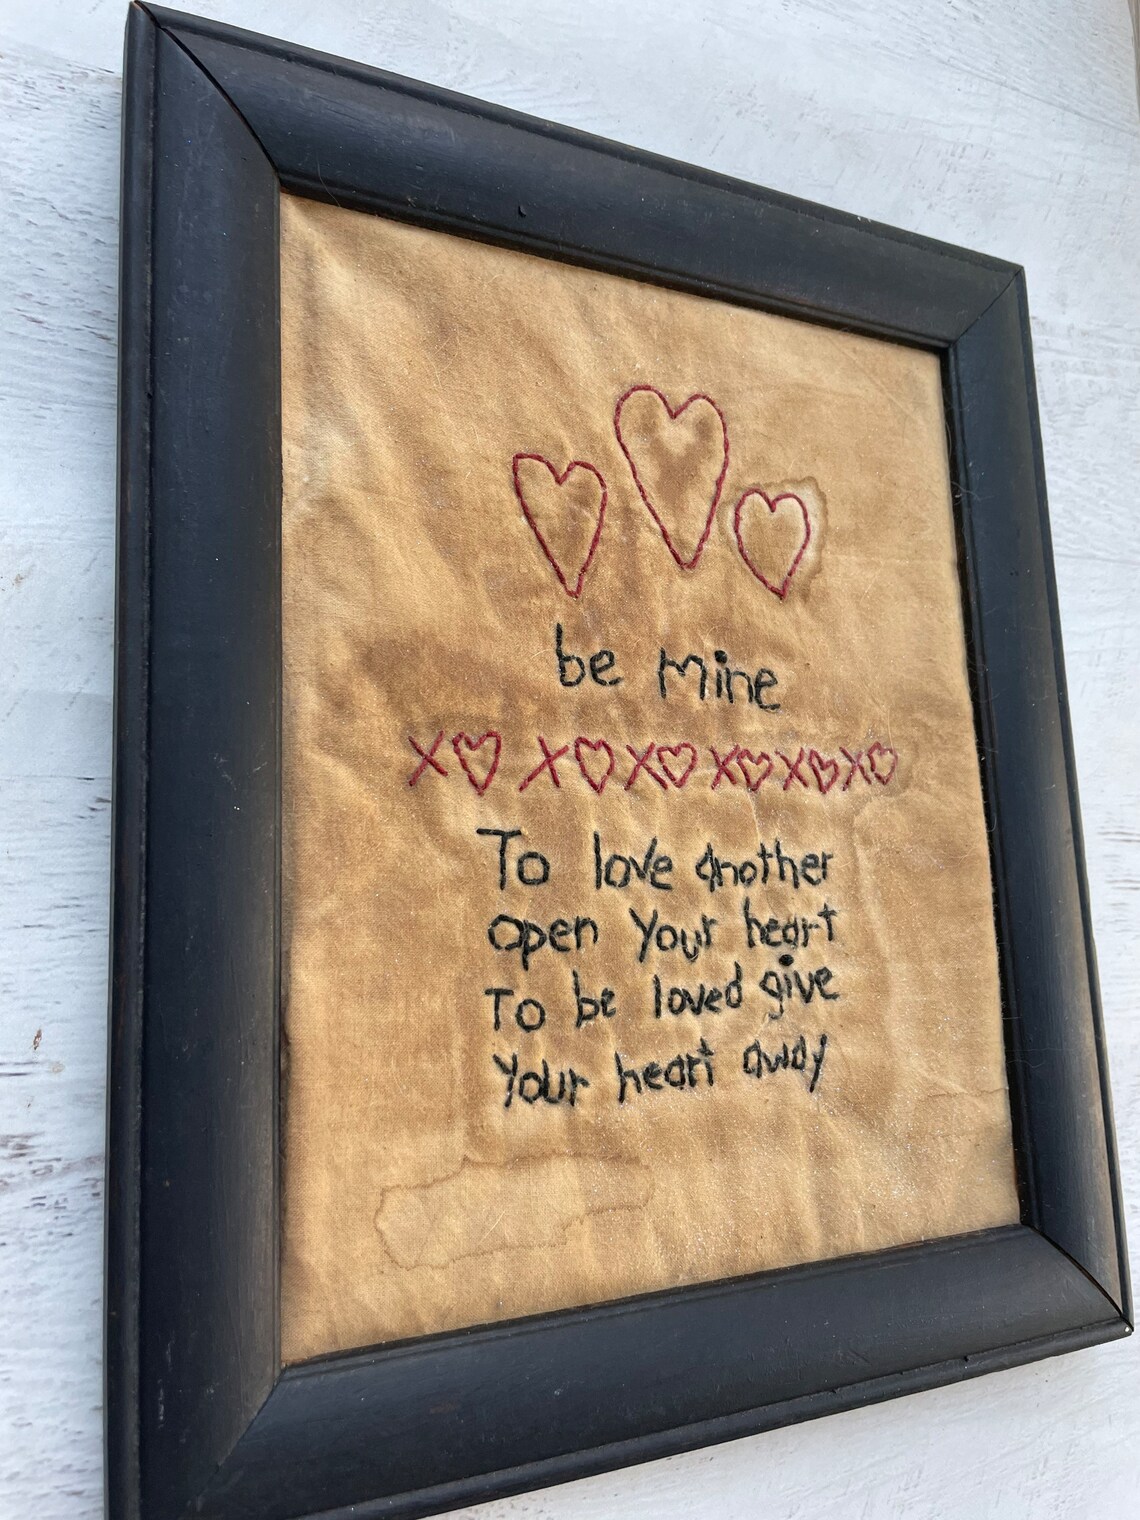 be Mine
X♡ X♡ X♡ X♡ X♡ X♡
To love another
open Your heart
To be loved give
Your heart away